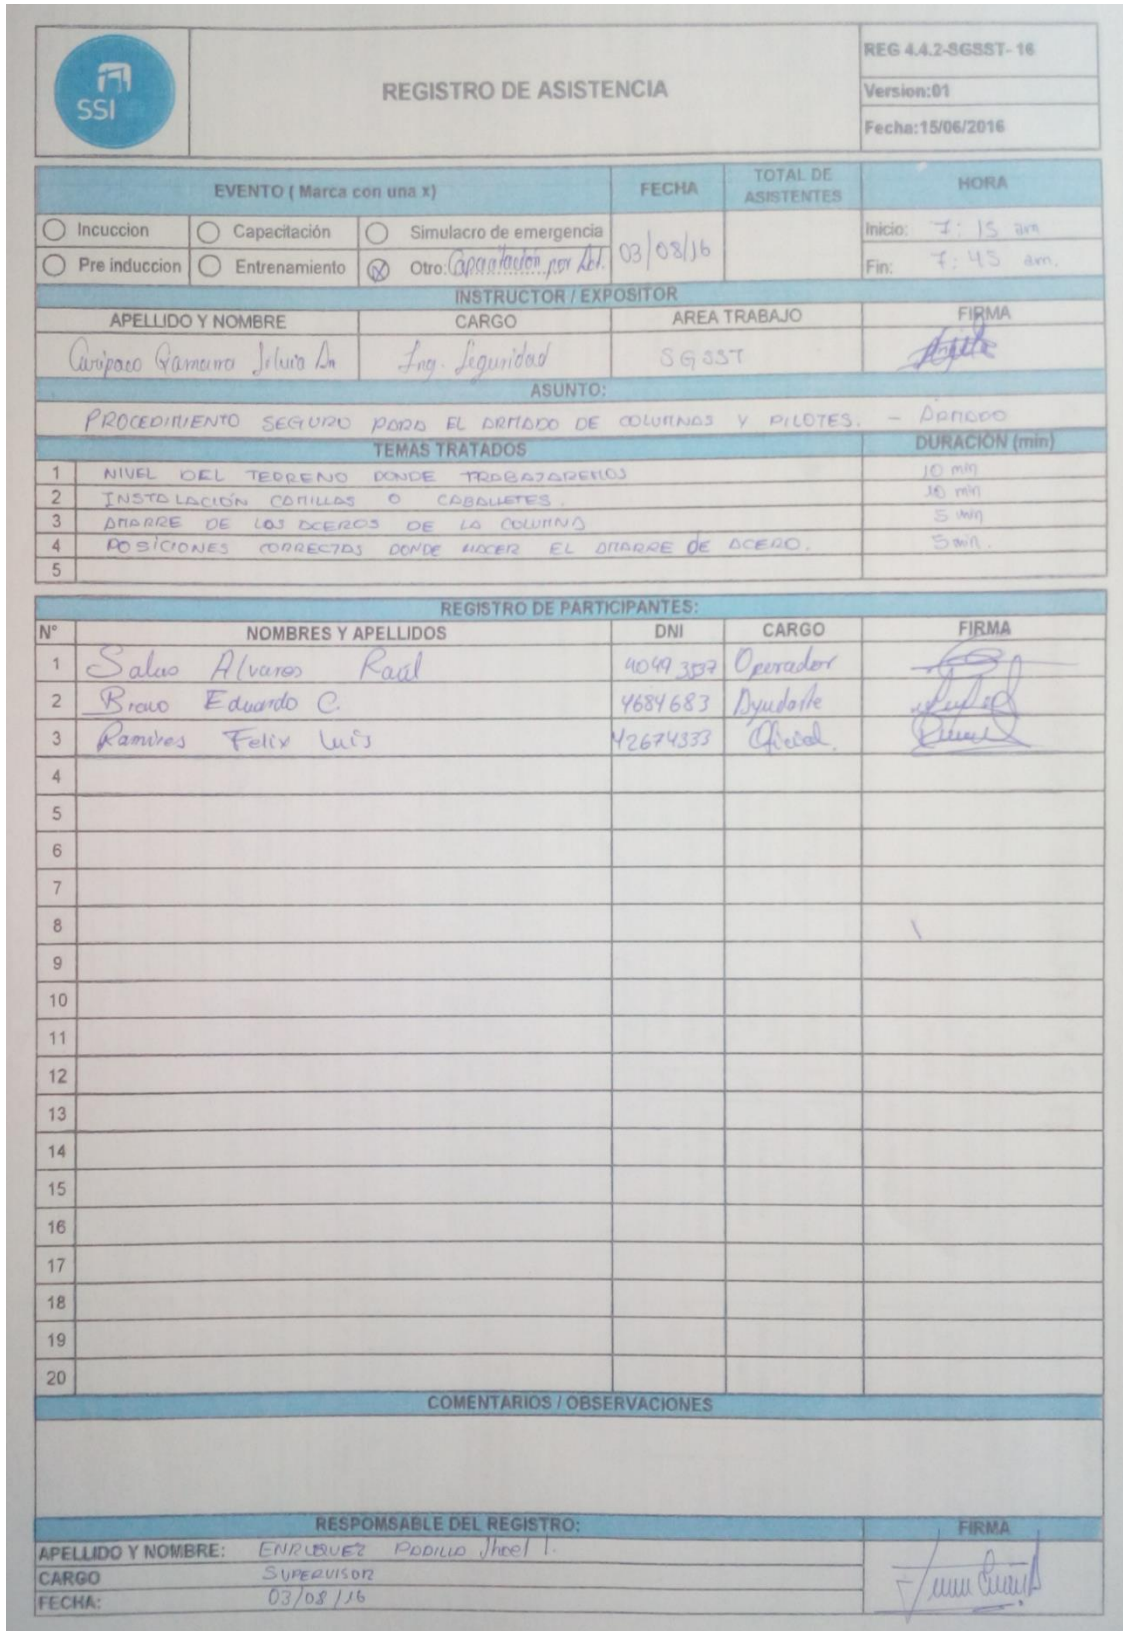 SSI
REGISTRO DE ASISTENCIA
REG 4.4.2-SGSST- 16
Version:01
Fecha:15/06/2016
EVENTO ( Marca con una x) FECHA TOTAL DE ASISTENTES HORA
Incuccion Capacitación Simulacro de emergencia 03/08/16 Inicio: 7:15 am
Pre induccion Entrenamiento Otro: Capacitación por Act. Fin: 7:45 am.
INSTRUCTOR / EXPOSITOR
APELLIDO Y NOMBRE CARGO AREA TRABAJO FIRMA
Ing. Seguridad SGSST
ASUNTO:
PROCEDIMIENTO SEGURO PARA EL ARMADO DE COLUMNAS Y PILOTES. - ARMADO
TEMAS TRATADOS DURACIÓN (min)
1 NIVEL DEL TERRENO DONDE TRABAJAREMOS 10 min
2 INSTALACIÓN COMILLAS O CABALLETES. 10 min
3 AMARRE DE LOS ACEROS DE LA COLUMNA 5 min
4 POSICIONES CORRECTAS DONDE HACER EL AMARRE DE ACERO. 5 min.
5
REGISTRO DE PARTICIPANTES:
N° NOMBRES Y APELLIDOS DNI CARGO FIRMA
1 Salas Alvares Raúl Operador
2 Bravo Eduardo C. 4684683 Ayudante
3 Ramires Felix Luis 42674333 Oficial
4
5
6
7
8
9
10
11
12
13
14
15
16
17
18
19
20
COMENTARIOS / OBSERVACIONES
RESPOMSABLE DEL REGISTRO: FIRMA
APELLIDO Y NOMBRE: ENRIQUEZ PADILLA Jhoel I.
CARGO SUPERVISOR
FECHA: 03/08/16